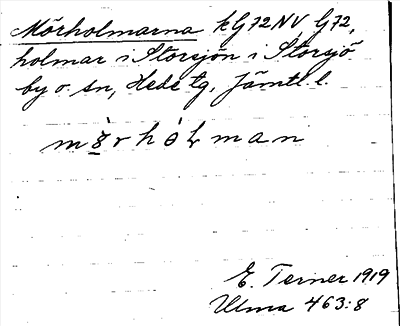 Mörholmarna kG72NV, G72,
holmar i Storsjön i Storsjö
by o. sn, Hede tg, Jämtl. l.
mö̀rhólman
E. Terner 1919
Ulma 463:8